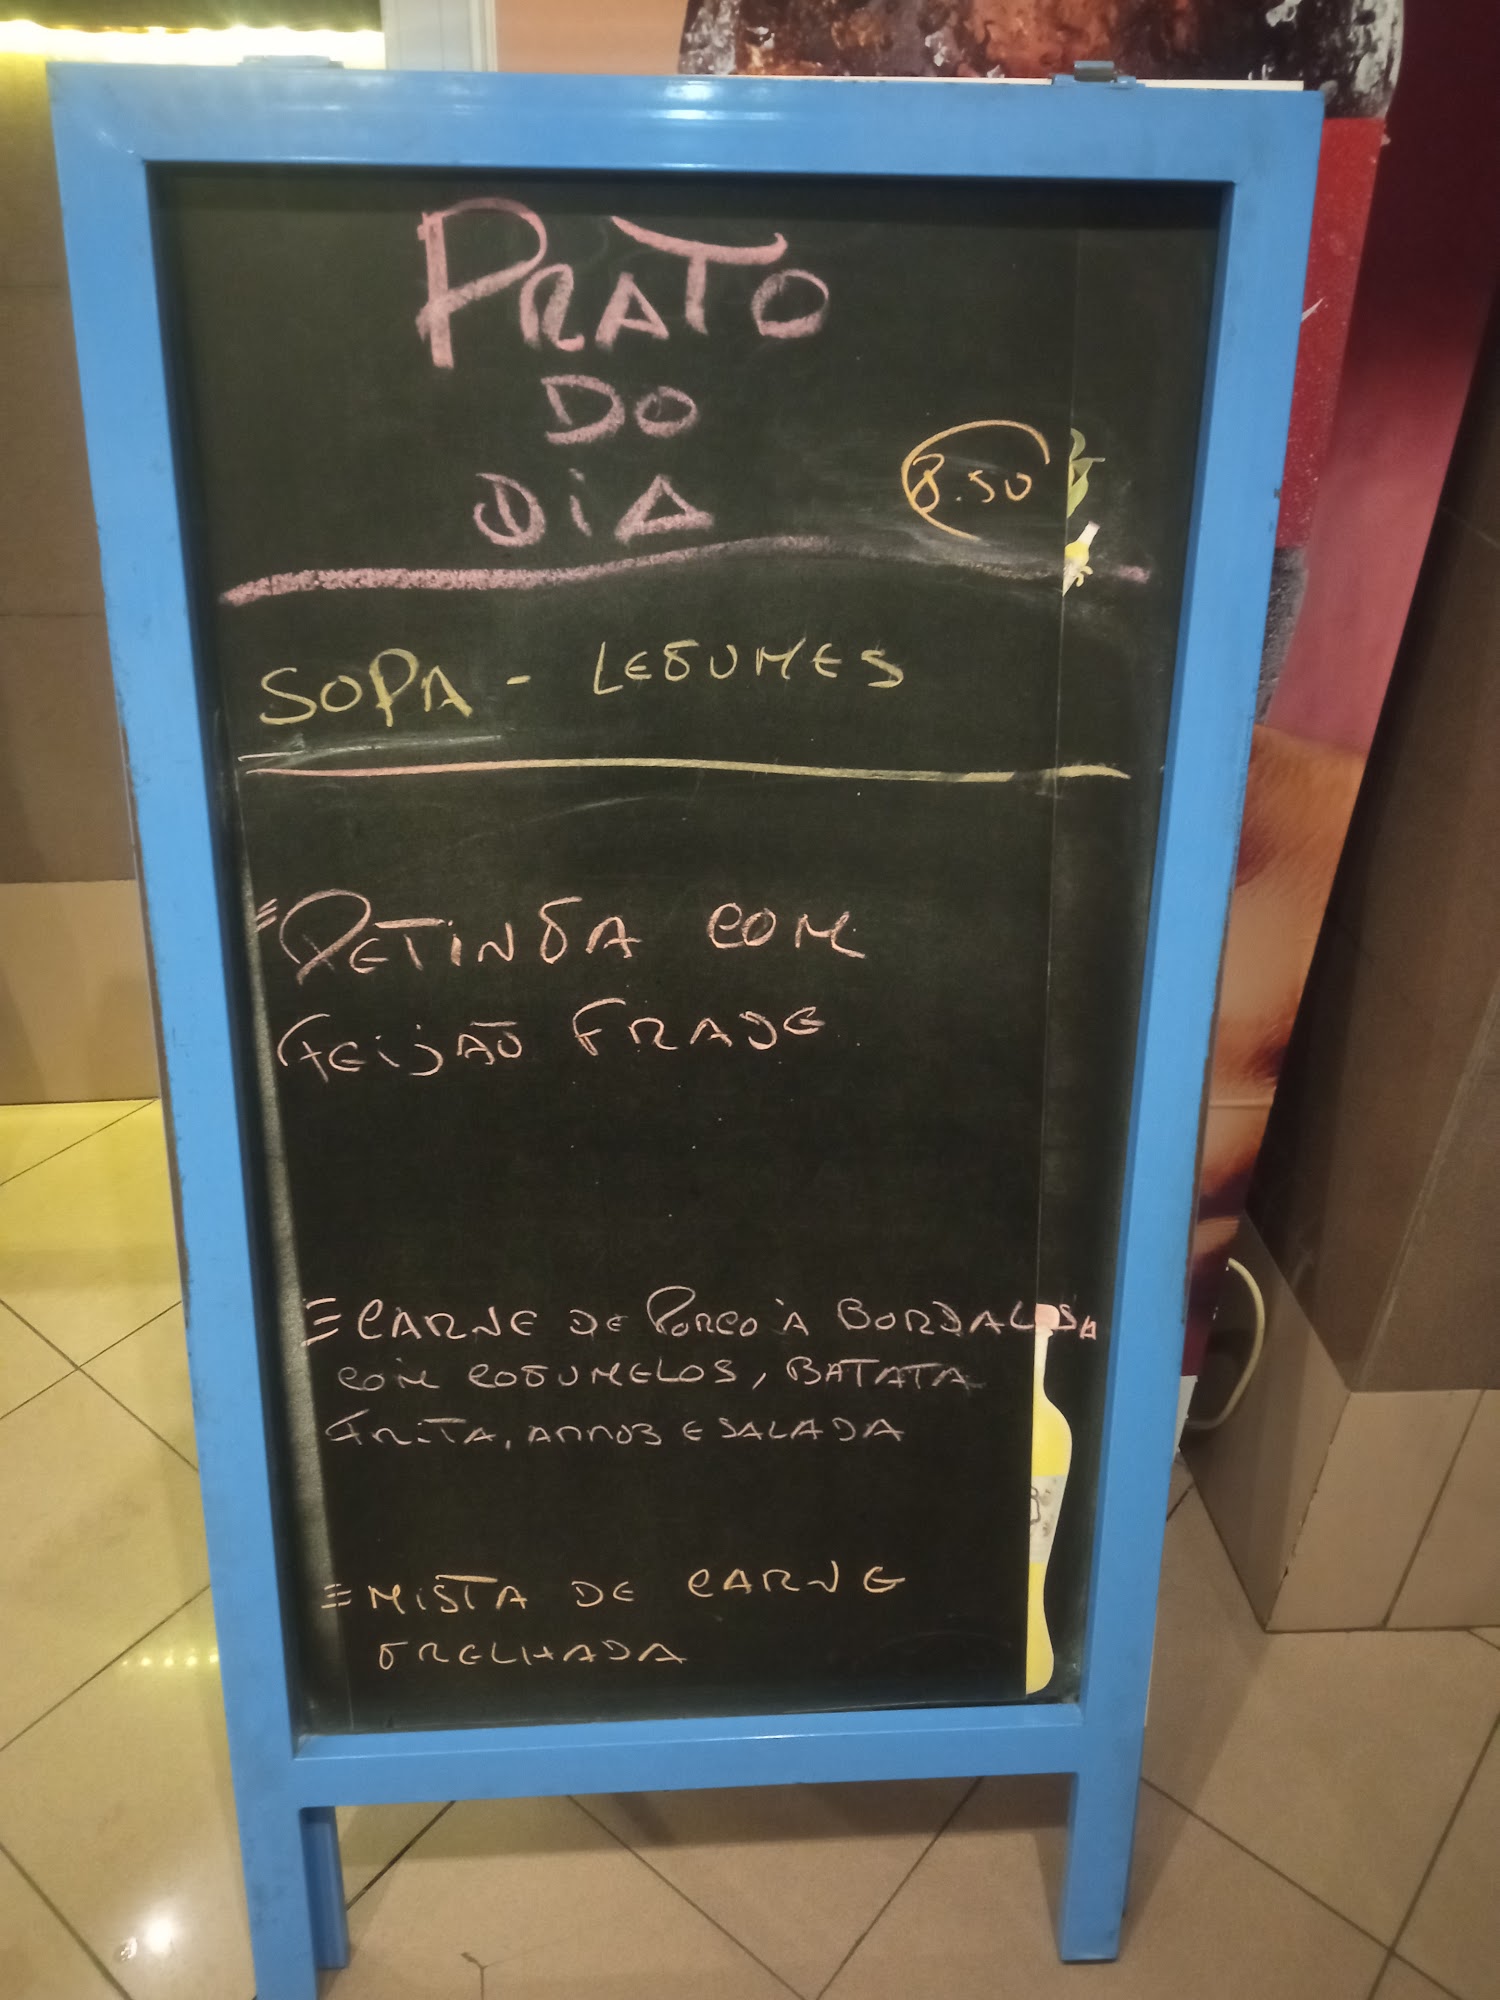 PRATO
DO
DIA
8.50
SOPA - LEGUMES
PETINGA COM
FEIJÃO FRADE
CARNE DE PORCO À BORDALESA
COM COGUMELOS, BATATA
FRITA, ARROZ E SALADA
MISTA DE CARNE
GRELHADA